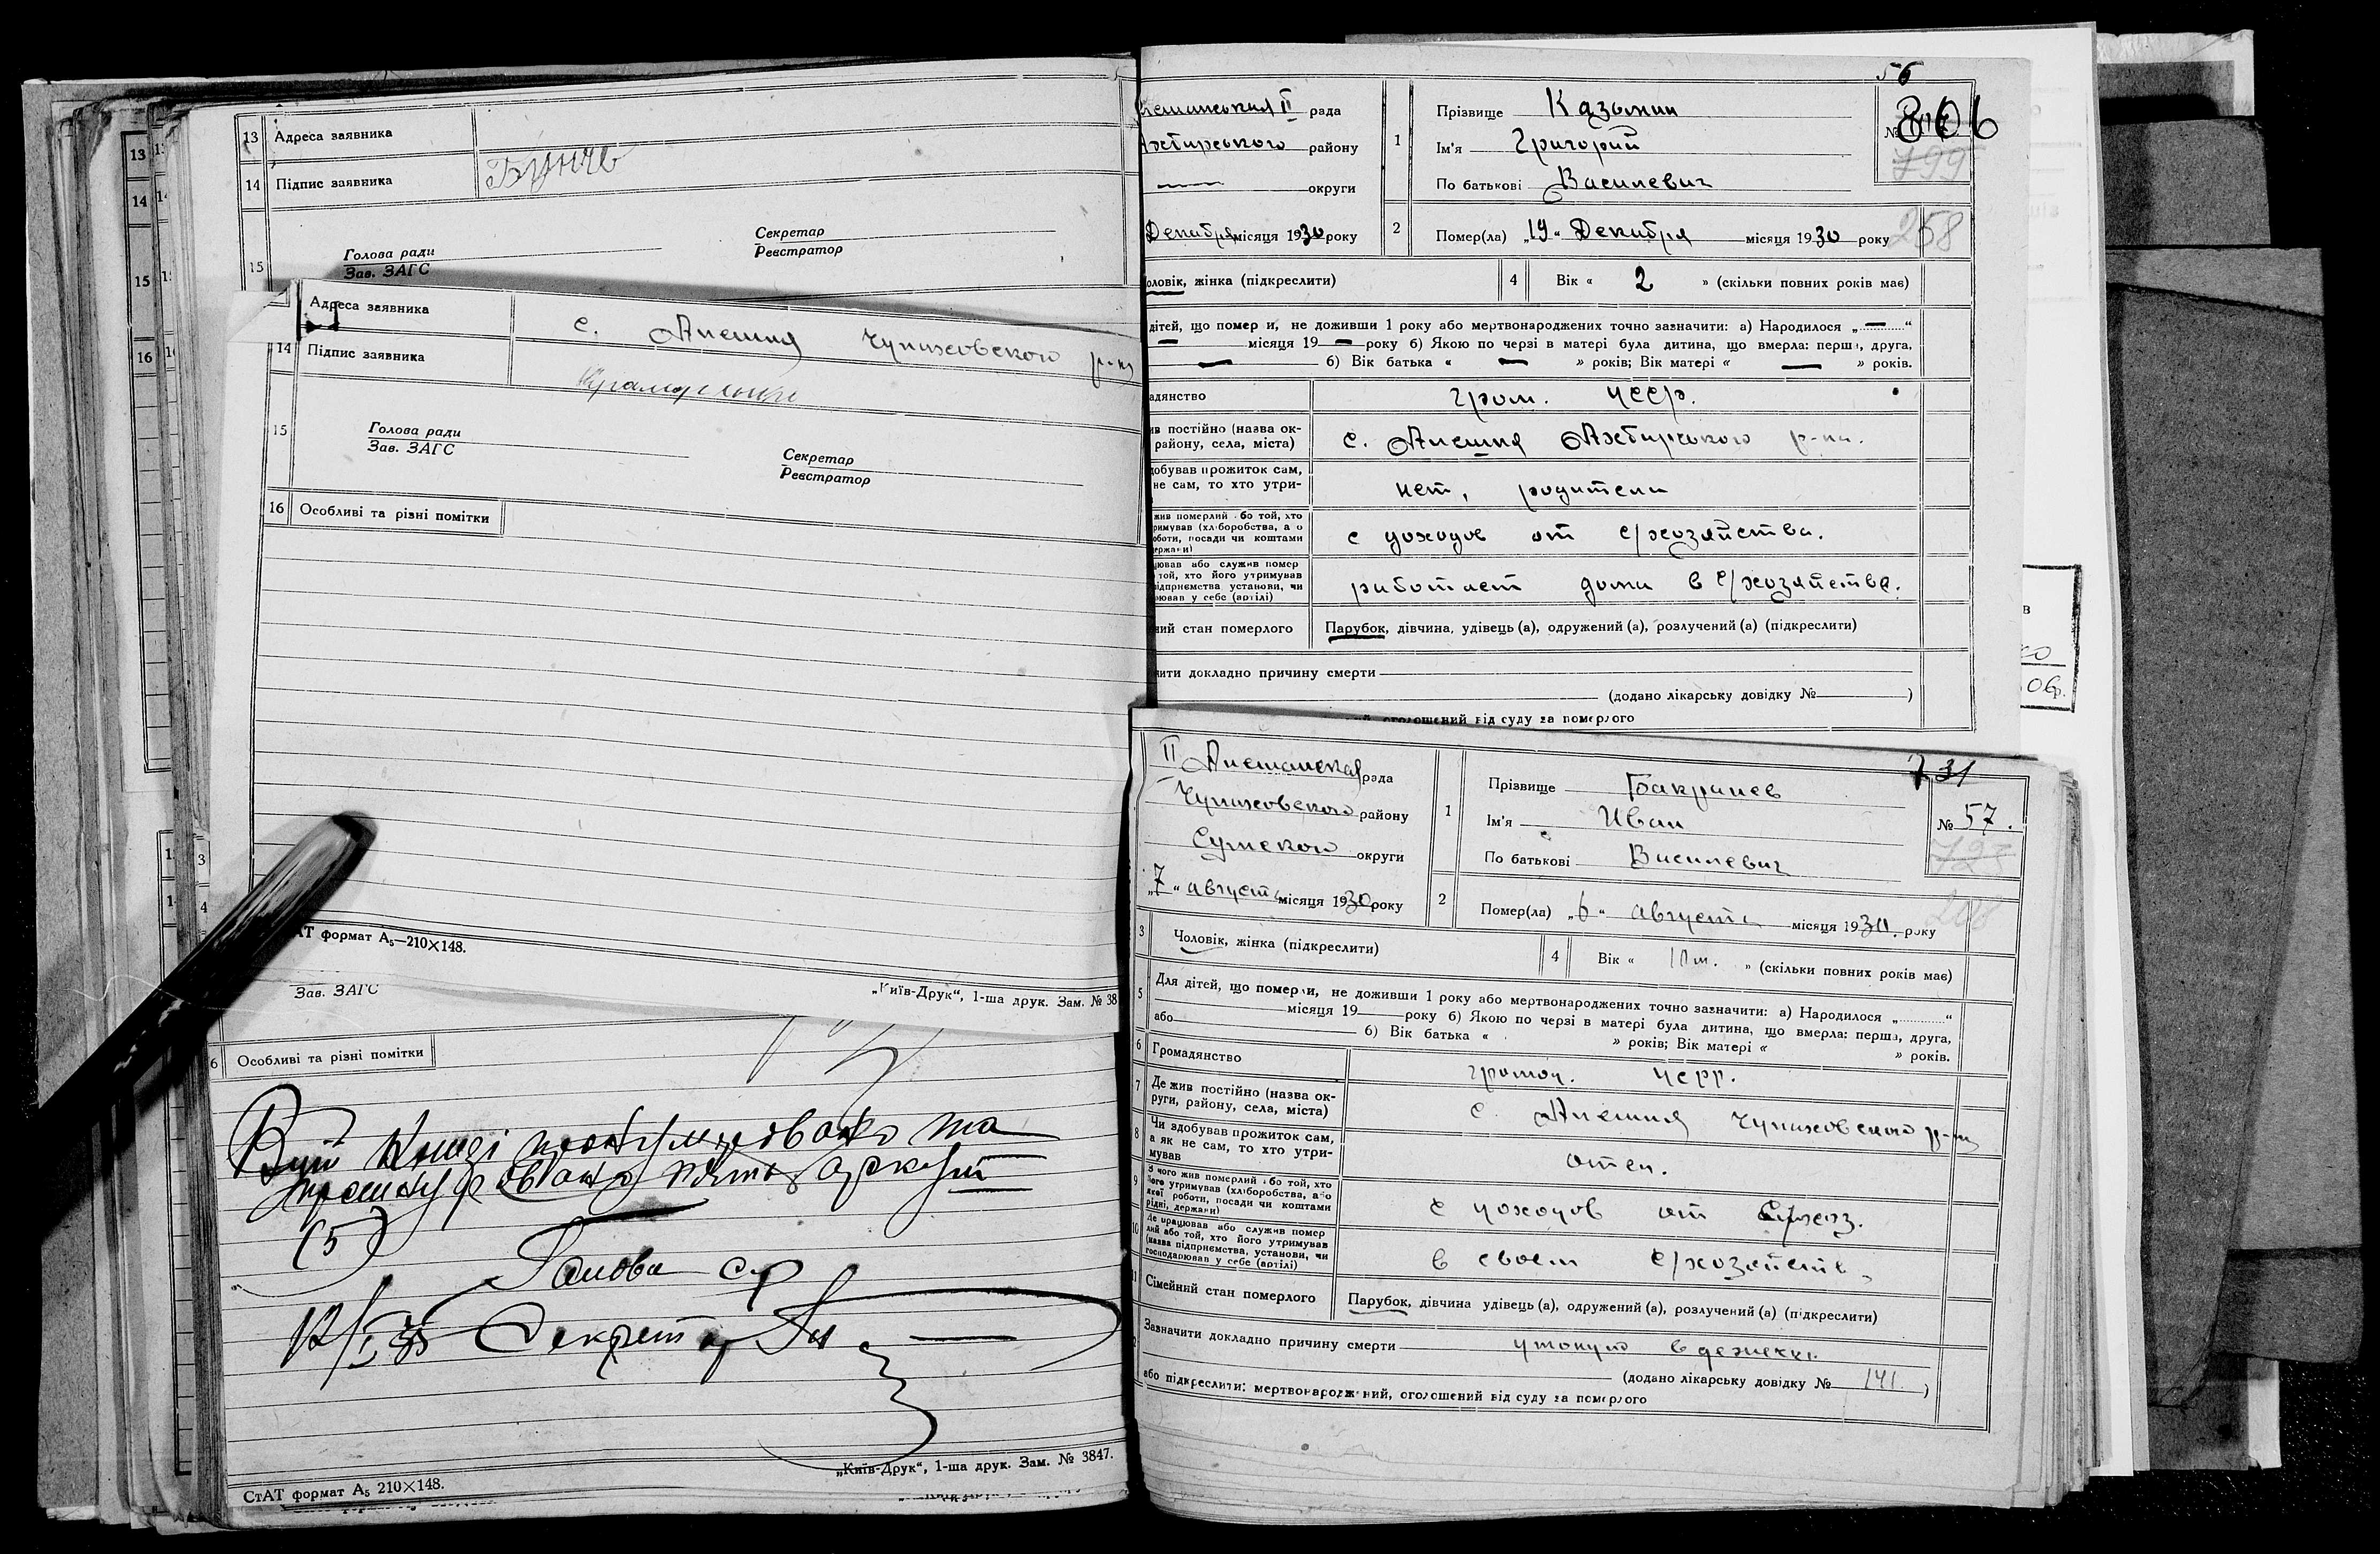 13 Адреса заявника
14 Підпис заявника
15
Голова ради
Зав. ЗАГС
Секретар
Реєстратор
Адреса заявника с. Алешня Чупаховского р-на
14 Підпис заявника
15
Голова ради
Зав. ЗАГС
Секретар
Реєстратор
16 Особливі та різні помітки
АТ формат А5—210×148.
„Київ-Друк“, 1-ша друк. Зам. № 38
Зав. ЗАГС
6 Особливі та різні помітки
В цій книзі пронумеровано та
прошнуровано пять аркушів
(5)
Голова с/р
12/I 35 Секретар
„Київ-Друк“, 1-ша друк. Зам. № 3847.
СтАТ формат А5 210×148.
56
II рада
Ахтирського району
— округи
Декабря місяця 1930 року
1 Прізвище Казьмин
Ім'я Григорий
По батькові Василевич
№
806
799
2 Помер(ла) „19“ Декабря місяця 1930 року
258
оловік, жінка (підкреслити)
4 Вік « 2 » (скільки повних років має)
дітей, що померли, не доживши 1 року або мертвонароджених точно зазначити: а) Народилося „—“
— місяця 19— року б) Якою по черзі в матері була дитина, що вмерла: перша, друга,
— 6) Вік батька « — » років; Вік матері « — » років.
адянство гром. УССР.
ив постійно (назва ок-
району, села, міста) с. Алешня Ахтирського р-на.
добував прожиток сам,
не сам, то хто утри- нет, родители
жив померлий або той, хто
римував (хліборобства, а о
оботи, посади чи коштами
держави) с доходов от с/хозяйства.
ював або служив помер
той, хто його утримував
ідприємства установи, чи
рював у себе (артілі) работает дома в с/хозяйства.
ний стан померлого Парубок, дівчина, удівець(а), одружений(а), розлучений(а) (підкреслити)
чити докладно причину смерти
(додано лікарську довідку № )
оголошений від суду за померлого
II Алешанская рада
Чупаховского району
Сумского округи
„7“ августа місяця 1930 року
1 Прізвище
Ім'я Иван
По батькові Василевич
731
№ 57.
2 Помер(ла) „6“ августа місяця 1930. року
3 Чоловік, жінка (підкреслити)
4 Вік « » (скільки повних років має)
5 Для дітей, що померли, не доживши 1 року або мертвонароджених точно зазначити: а) Народилося „ “
місяця 19 року б) Якою по черзі в матері була дитина, що вмерла: перша, друга,
або 6) Вік батька « » років; Вік матері « » років.
6 Громадянство громад. УСРР.
7 Де жив постійно (назва ок-
руги, району, села, міста) с. Алешня Чупаховского р-на
8 Чи здобував прожиток сам,
а як не сам, то хто утри-
мував отец.
9 З чого жив померлий або той, хто
його утримував (хліборобства, або
якої роботи, посади чи коштами
рідні, держави) с доходов от с/хоз.
10 Де працював або служив помер
лий або той, хто його утримував
(назва підприємства, установи, чи
господарював у себе (артілі) в своем с/хозяйстве
11 Сімейний стан померлого Парубок, дівчина удівець(а), одружений(а), розлучений(а) (підкреслити)
Зазначити докладно причину смерти утонул в
(додано лікарську довідку № 141. )
або підкреслити: мертвонароджений, оголошений від суду за померлого